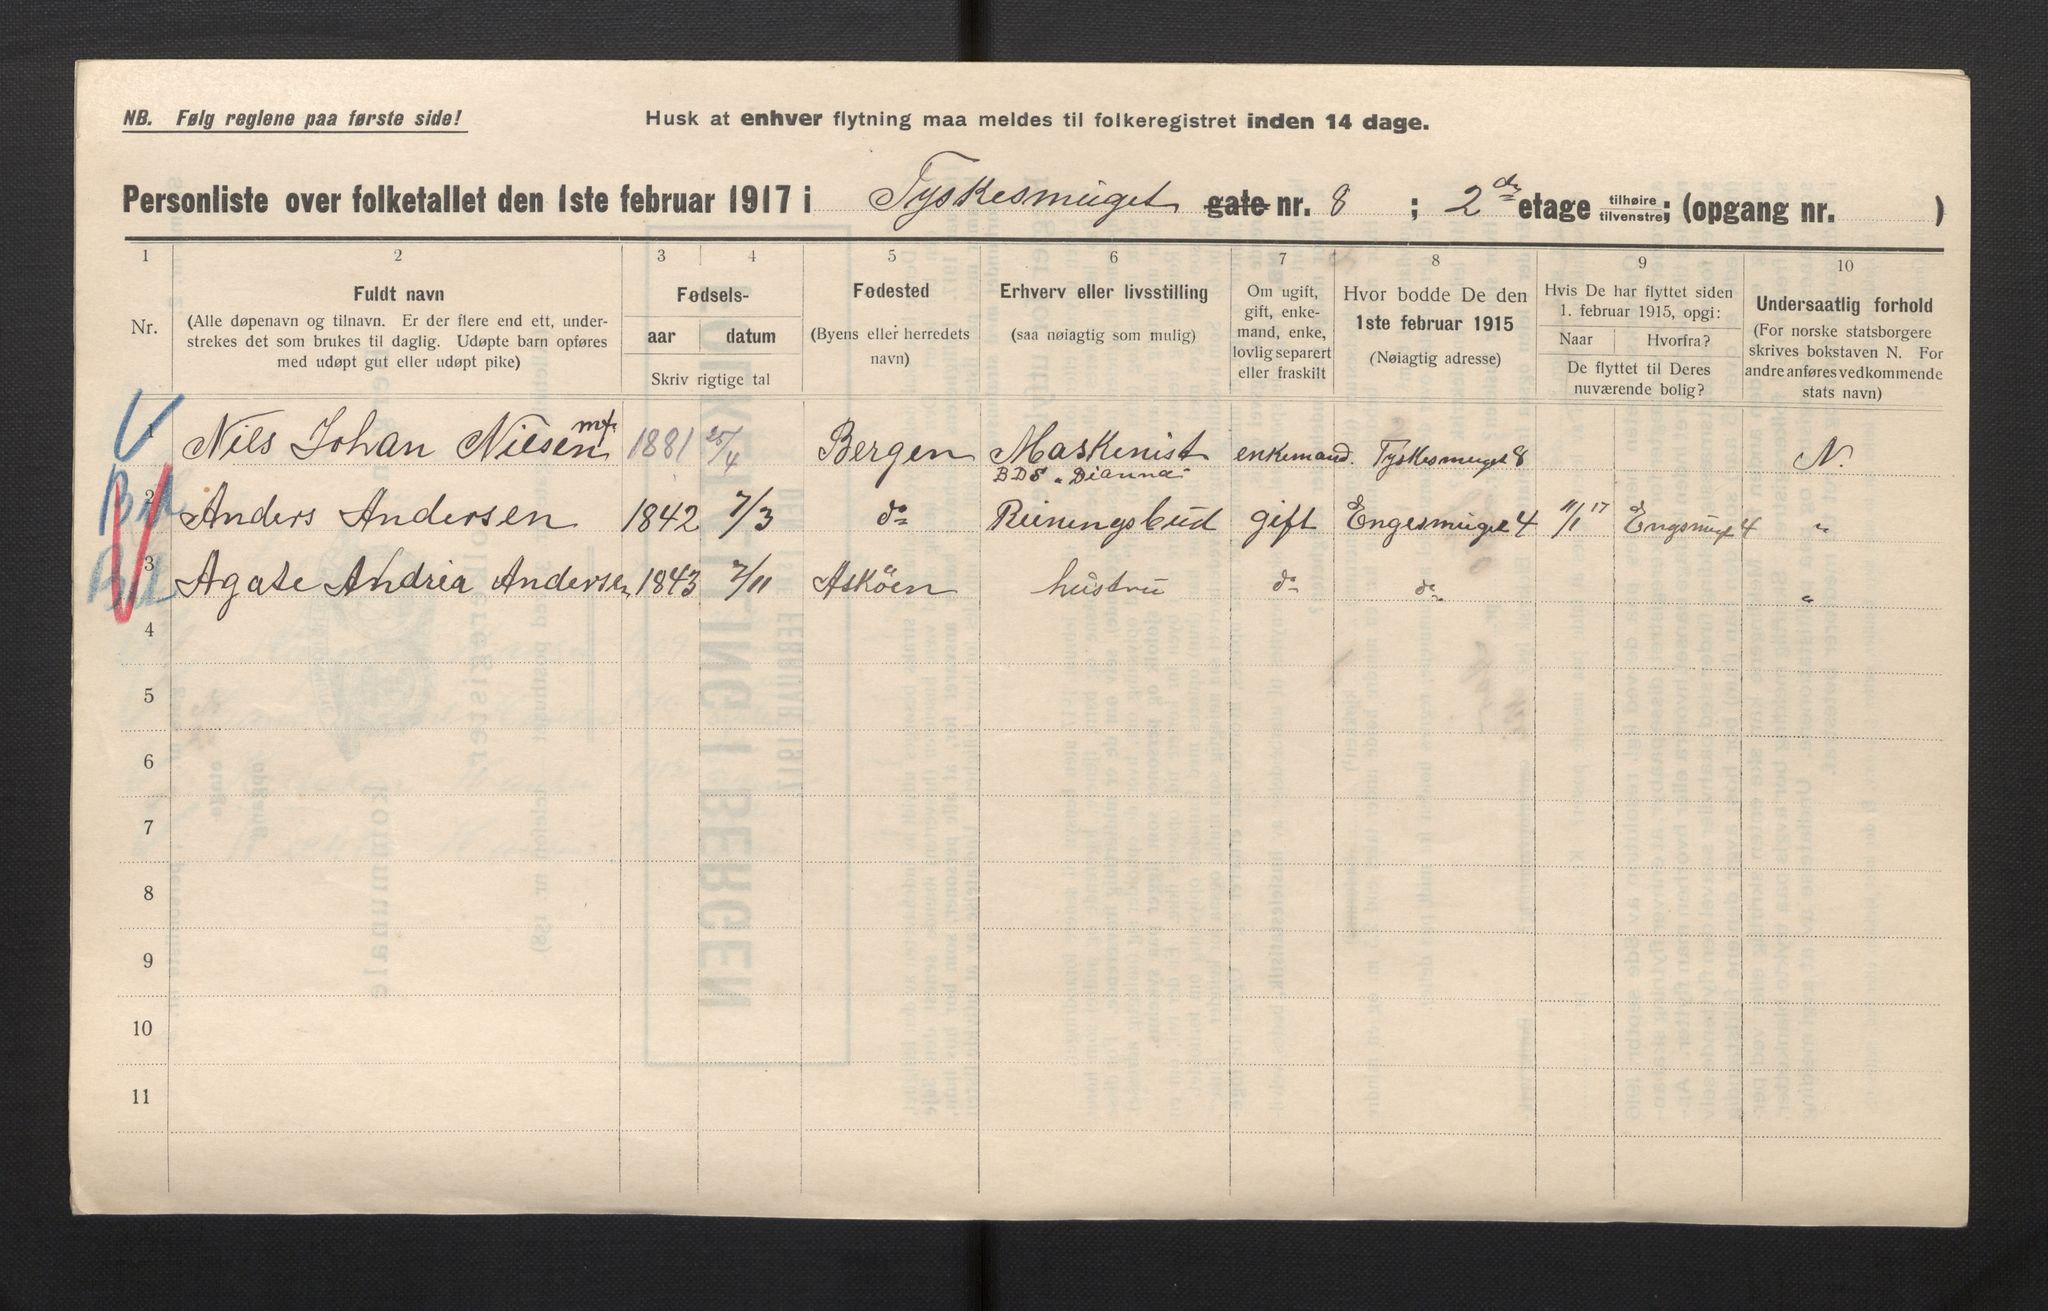 NB. Følg reglene paa første side!
Husk at enhver flytning maa meldes til folkeregistret inden 14 dage.
Personliste over folketallet den 1ste februar 1917 i Tyskesmuget gate nr. 8 ; 2den etage tilhøire tilvenstre; (opgang nr. )
1 2 3 4 5 6 7 8 9 10
Nr.
Fuldt navn
(Alle døpenavn og tilnavn. Er der flere end ett, under-
strekes det som brukes til daglig. Udøpte barn opføres
med udøpt gut eller udøpt pike)
Fødsels-
aar datum
Skriv rigtige tal
Fødested
(Byens eller herredets
navn)
Erhverv eller livsstilling
(saa nøiagtig som mulig)
Om ugift,
gift, enke-
mand, enke,
lovlig separert
eller fraskilt
Hvor bodde De den
1ste februar 1915
(Nøiagtig adresse)
Hvis De har flyttet siden
1. februar 1915, opgi:
Naar Hvorfra?
De flyttet til Deres
nuværende bolig?
Undersaatlig forhold
(For norske statsborgere
skrives bokstaven N. For
andre anføres vedkommende
stats navn)
1 Nils Johan Nilsen 1881 25/4 Bergen Maskenist enkemand. Tyskesmuget 8 N.
BDS "Dianna"
2 Anders Andersen 1842 7/3 do Reiningsbud gift Engesmuget 4 11/1 17 Engsmuget 4 "
3 Agate Andrea Andersen 1843 7/11 Asköen hustru do do "
4
5
6
7
8
9
10
11